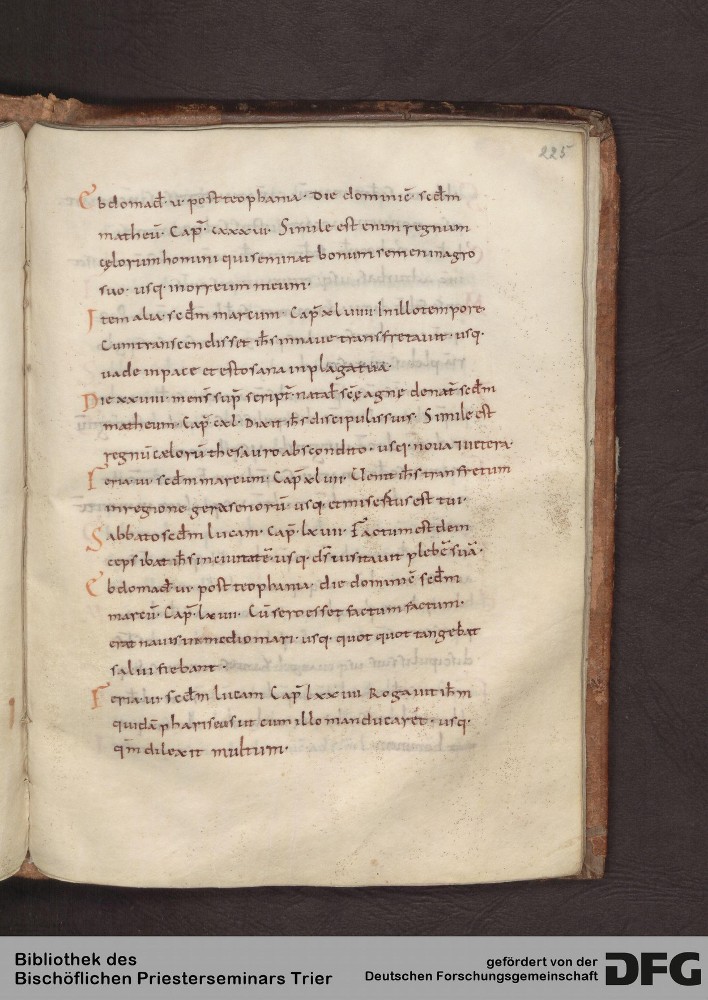 225
Ebdomad̄· v· post teophania· Die dominic̄· sec̄dm
matheū· Cap̄· cxxxvi· Simile est enim regnum
cęlorum homini qui seminat bonum semen in agro
suo· usq· in orreum meum·
Item alia· sec̄dm marcum· Cap̄ xlviiii· In illo tempore·
Cum transcendisset ih̄s in naue transfretauit· usq·
uade in pace et esto sana in plaga tua·
Die xxviii· mens̄ sup̄ script̄· natal̄ sc̄ę agnę de nat̄ sec̄dm
matheum· Cap̄ cxl· Dixit ih̄s discipulis suis· Simile est
regnū cęlorū thesauro abscondito· usq· noua & uetera·
Feria· vi· sec̄dm marcum· Cap̄ xlvii· Uenit ih̄s trans fretum
in regione gerasenorū· usq· et misertus est tui·
Sabbato sec̄dm lucam· Cap̄ lxvii· Factum est dein
ceps ibat ih̄s in ciuitatē· usq· d̄s uisitauit plebē suā·
Ebdomad̄· vi· post teophania· die dominic̄ sec̄dm
marcū· Cap̄· lxvii· Cū sero esset factum factum·
erat nauis in medio mari· usq· quot quot tangebat
salui fiebant·
Feria· vi· sec̄dm lucam Cap̄ lxxiiii Rogauit ih̄m
quidā phariseus ut cum illo manducaret· usq·
qm̄ dilexit multum·
Bibliothek des
Bischöflichen Priesterseminars Trier
gefördert von der
Deutschen Forschungsgemeinschaft
DFG